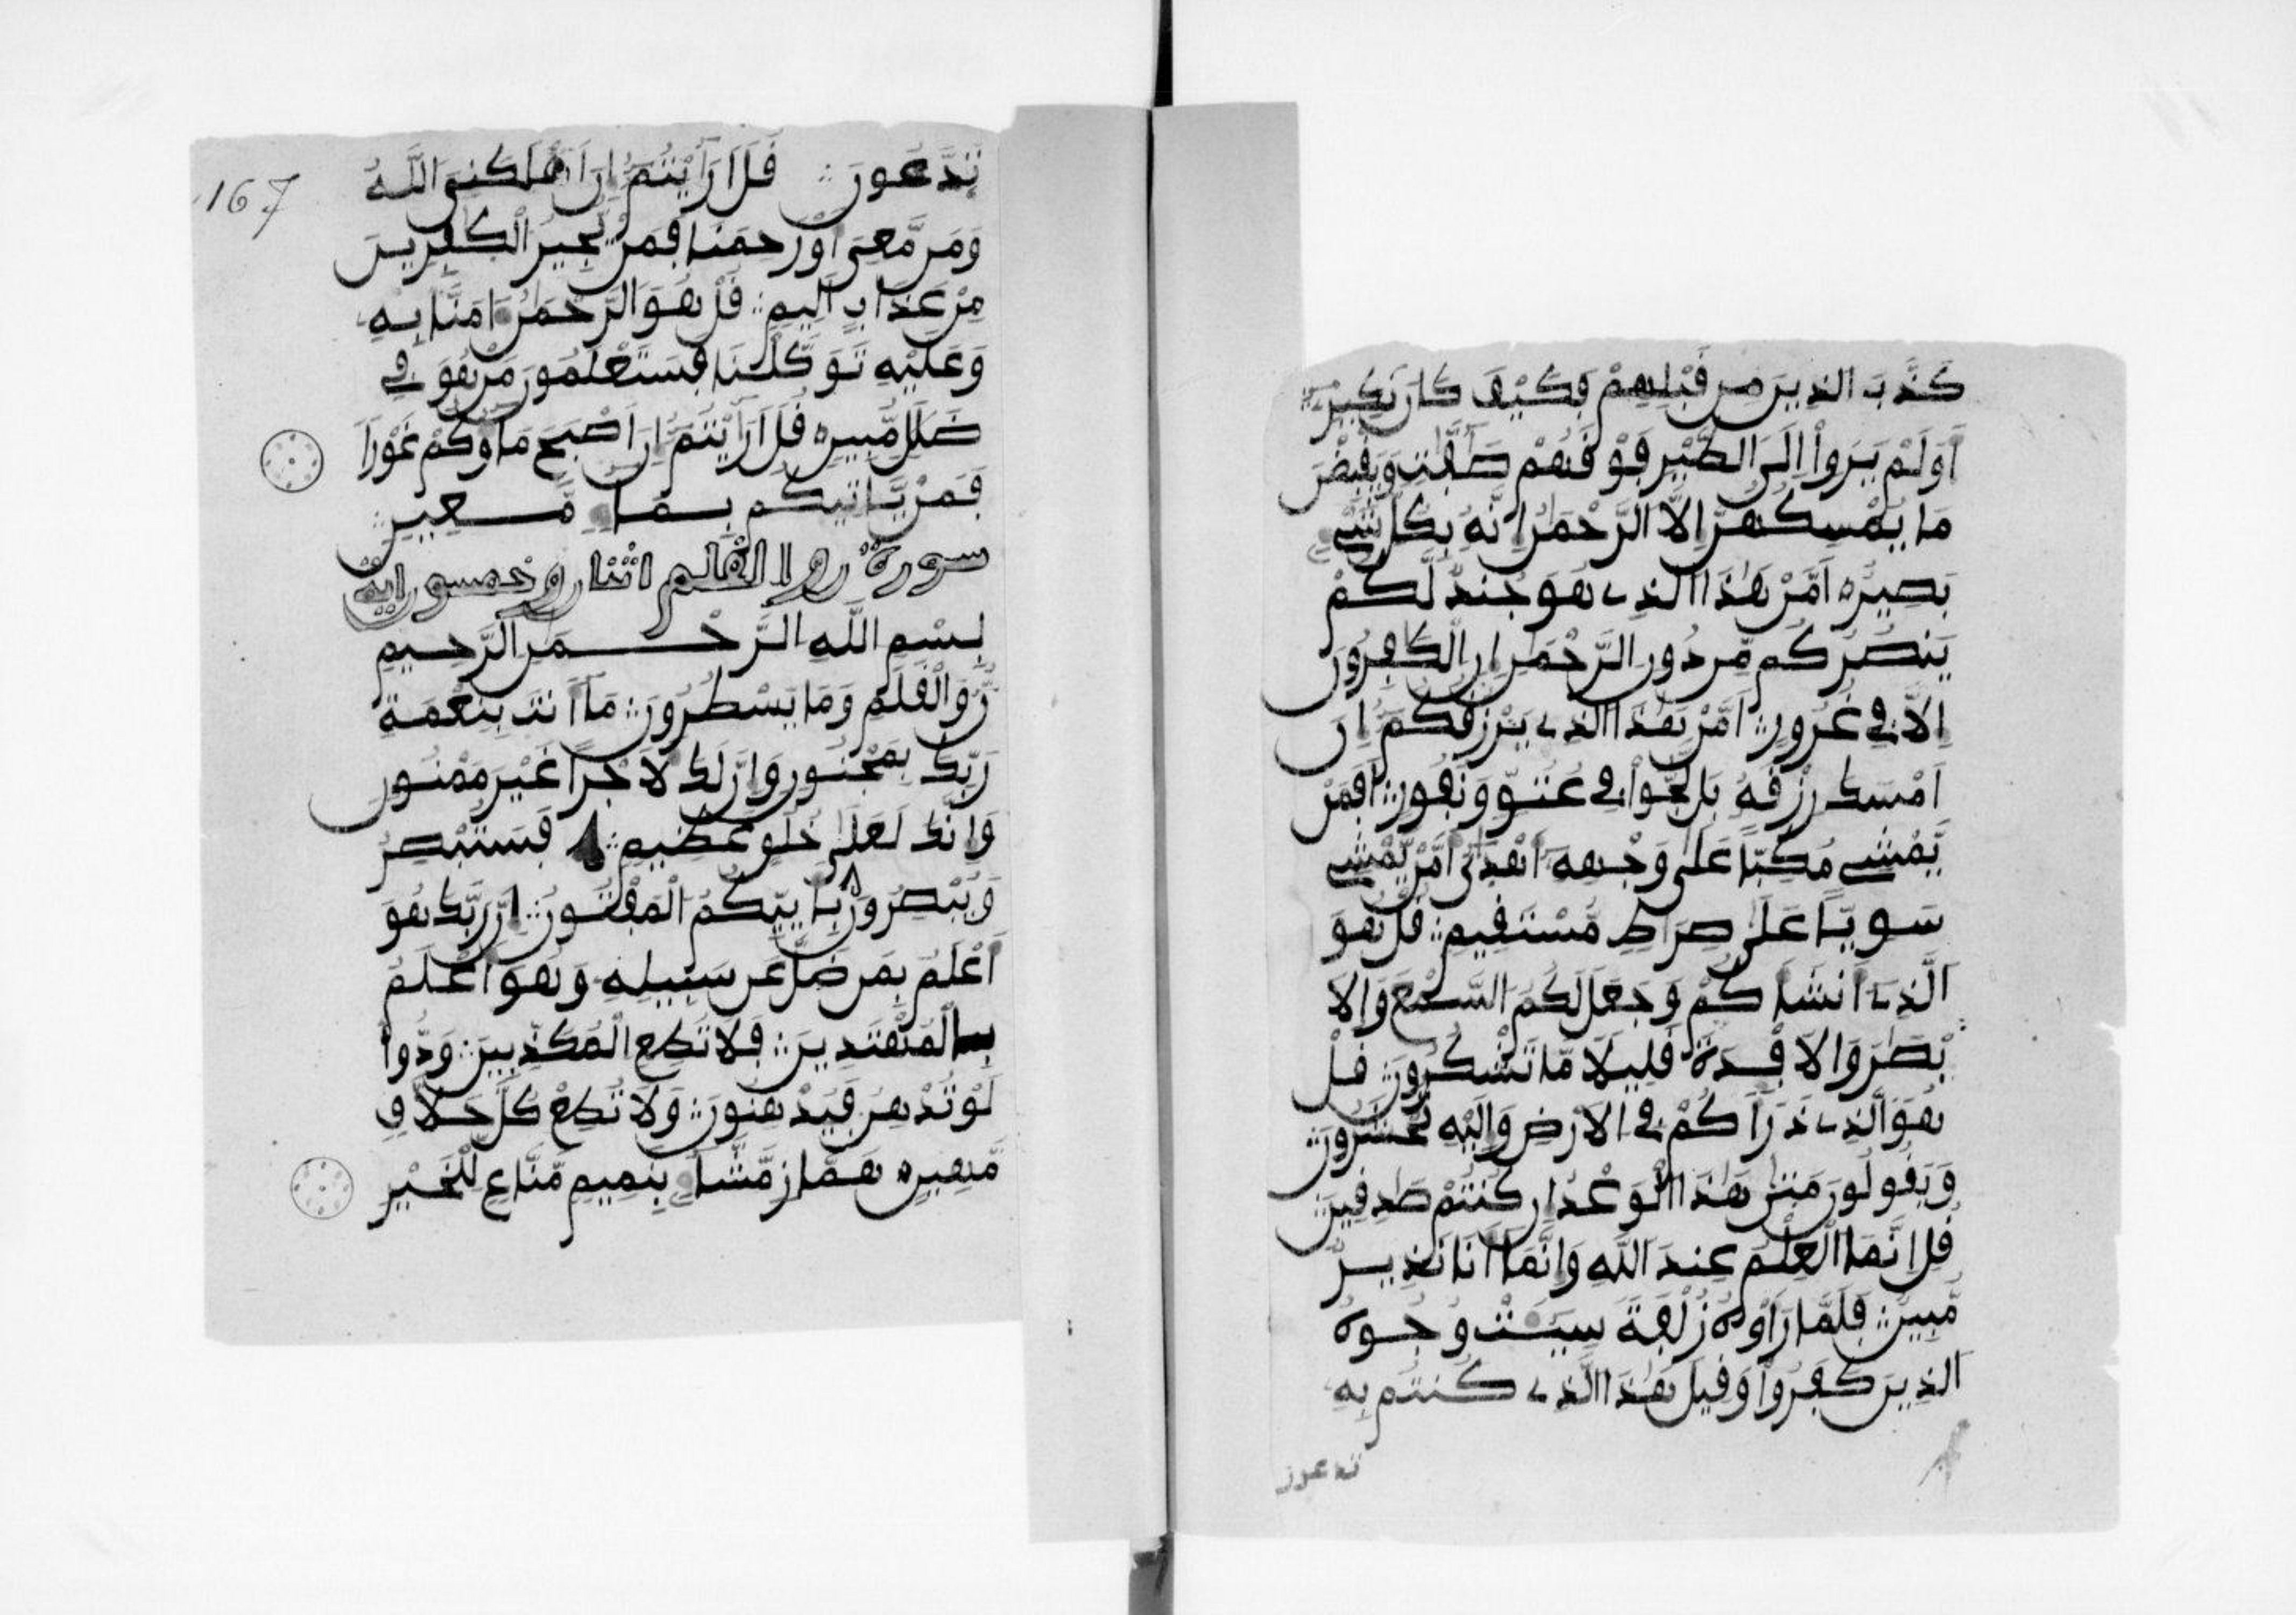 كَذَّبَ الذِينَ مِن قَبْلِهِمْ فَكَيْفَ كَانَ نَكِيرِ
اَوَلَمْ يَرَوِاْ اِلَى الطَّيْرِ فَوْقَهُمْ صَٰٓفَّٰتٖ وَيَقْبِضْنَ
مَا يُمْسِكُهُنَّ إِلَّا الرَّحْمَٰنُ إِنَّهُ بِكُلِّ شَيْءِۢ
بَصِيرٌ اَمَّنْ هَٰذَا الذِے هُوَ جُندٞ لَّكُمْ
يَنصُرُكُم مِّن دُونِ الرَّحْمَٰنِ إِنِ الْكَٰفِرُونَ
إِلَّا فِے غُرُورٍ اَمَّنْ هَٰذَا الذِے يَرْزُقُكُمُ إِنَ
اَمْسَكَ رِزْقَهُ بَل لَّجُّواْ فِے عُتُوّٖ وَنُفُورٍ اَفَمَنْ
يَّمْشِے مُكِبّاً عَلَىٰ وَجْهِهِ أَهْدَىٰٓ أَمَّنْ يَّمْشِے
سَوِيّاً عَلَىٰ صِرَٰطٖ مُّسْتَقِيمٖ قُلْ هُوَ
الَّذِے أَنشَأَكُمْ وَجَعَلَ لَكُمُ السَّمْعَ وَالَا
بْصَٰرَ وَالَافْـِٕدَةَ قَلِيلاً مَّا تَشْكُرُونَ قُلْ
هُوَ الَّذِے ذَرَأَكُمْ فِے الَارْضِ وَإِلَيْهِ تُحْشَرُونَ
وَيَقُولُونَ مَتَىٰ هَٰذَا الْوَعْدُ إِن كُنتُمْ صَٰدِقِينَ
قُلِ انَّمَا الْعِلْمُ عِندَ اللَّهِ وَإِنَّمَا أَنَا نَذِيرٞ
مُّبِينٞ فَلَمَّا رَأَوْهُ زُلْفَةٗ سِيٓـَٔتْ وُجُوهُ
الذِينَ كَفَرُواْ وَقِيلَ هَٰذَا الَّذِے كُنتُم بِهِ
تدعون
167
تَدَّعُونَ قُلَ اَرَٰٓيْتُمُ إِنَ اَهْلَكَنِيَ اللَّهُ
وَمَن مَّعِيَ أَوْ رَحِمَنَا فَمَنْ يُّجِيرُ الْكَٰفِرِينَ
مِنْ عَذَابٍ اَلِيمٖ قُلْ هُوَ الرَّحْمَٰنُ ءَامَنَّا بِهِ
وَعَلَيْهِ تَوَكَّلْنَا فَسَتَعْلَمُونَ مَنْ هُوَ فِے
ضَلَٰلٖ مُّبِينٖ قُلَ اَرَٰٓيْتُمُ إِنَ اَصْبَحَ مَآؤُكُمْ غَوْراٗ
فَمَنْ يَّاتِيكُم بِمَآءٖ مَّعِينٖ
سورة ن والقلم اثنان وخمسون اية
بِسْمِ اللَّهِ الرَّحْمَٰنِ الرَّحِيمِ
نٓ وَالْقَلَمِ وَمَا يَسْطُرُونَ مَا أَنتَ بِنِعْمَةِ
رَبِّكَ بِمَجْنُونٖ وَإِنَّ لَكَ لَأَجْراً غَيْرَ مَمْنُونٖ
وَإِنَّكَ لَعَلَىٰ خُلُقٍ عَظِيمٖ فَسَتُبْصِرُ
وَيُبْصِرُونَ بِأَييِّكُمُ الْمَفْتُونُ إِنَّ رَبَّكَ هُوَ
أَعْلَمُ بِمَن ضَلَّ عَن سَبِيلِهِ وَهُوَ أَعْلَمُ
بِالْمُهْتَدِينَ فَلَا تُطِعِ الْمُكَذِّبِينَ وَدُّواْ
لَوْ تُدْهِنُ فَيُدْهِنُونَ وَلَا تُطِعْ كُلَّ حَلَّافٖ
مَّهِينٍ هَمَّازٖ مَّشَّآءِۢ بِنَمِيمٖ مَّنَّاعٖ لِّلْخَيْرِ